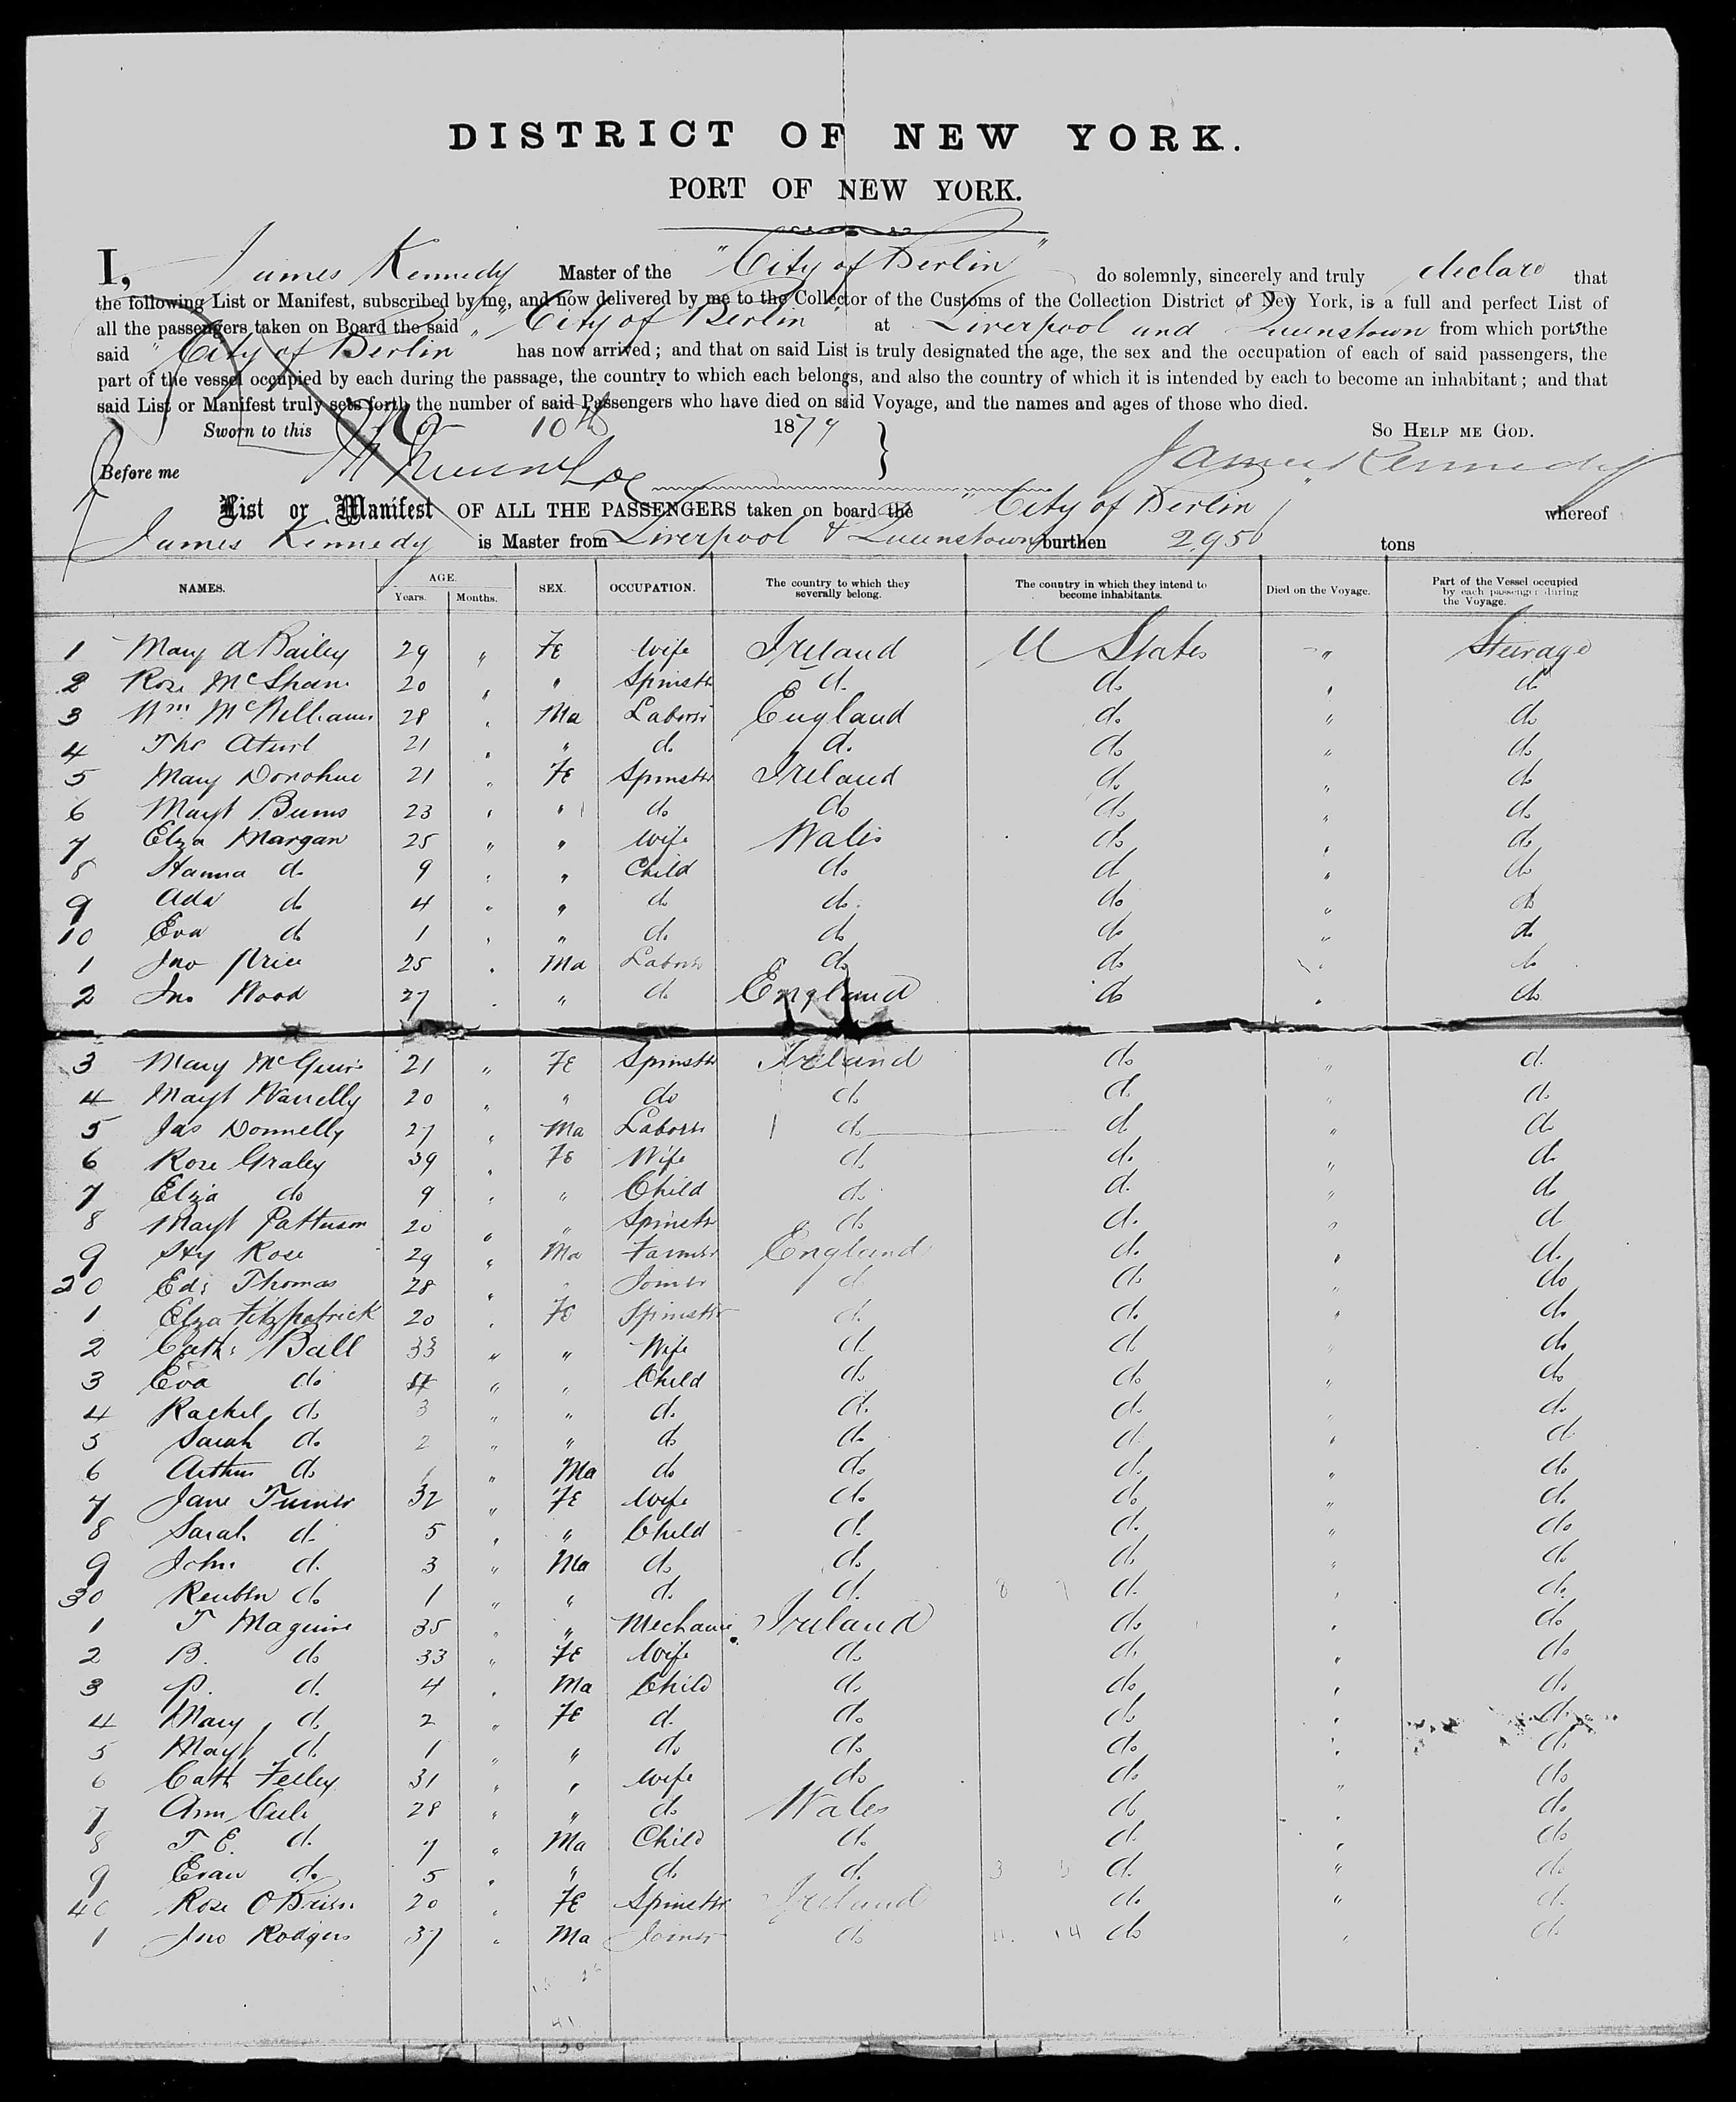 DISTRICT OF NEW YORK.
PORT OF NEW YORK.
I, James Kennedy Master of the "City of Berlin" do solemnly, sincerely and truly declare that
the following List or Manifest, subscribed by me, and now delivered by me to the Collector of the Customs of the Collection District of New York, is a full and perfect List of
all the passengers taken on Board the said "City of Berlin" at Liverpool and Queenstown from which ports the
said "City of Berlin" has now arrived; and that on said List is truly designated the age, the sex and the occupation of each of said passengers, the
part of the vessel occupied by each during the passage, the country to which each belongs, and also the country of which it is intended by each to become an inhabitant; and that
said List or Manifest truly sets forth the number of said Passengers who have died on said Voyage, and the names and ages of those who died.
Sworn to this 10th 1879 So Help me God.
Before me James Kennedy
List or Manifest OF ALL THE PASSENGERS taken on board the "City of Berlin" whereof
James Kennedy is Master from Liverpool & Queenstown burthen 2950 tons
NAMES. AGE. Years. Months. SEX. OCCUPATION. The country to which they severally belong. The country in which they intend to become inhabitants. Died on the Voyage. Part of the Vessel occupied by each passenger during the Voyage.
1 Mary A Bailey 29 " Fe Wife Ireland U States " Steerage
2 Rose McShane 20 " " Spinster do do " do
3 Wm McWilliams 28 " Ma Laborer England do " do
4 Tho 21 " " do do do " do
5 Mary Donohue 21 " Fe Spinster Ireland do " do
6 Magt Burns 23 " " do do do " do
7 Eliza Margan 25 " " Wife Wales do " do
8 Hanna do 9 " " Child do do " do
9 Ada do 4 " " do do do " do
10 Eva do 1 " " do do do " do
1 Jno Price 25 " Ma Laborer do do " do
2 Jno Wood 27 " " do England do " do
3 Mary McGuire 21 " Fe Spinster Ireland do " do
4 Magt 20 " " do do do " do
5 Jas Donnelly 27 " Ma Laborer do do " do
6 Rose Graley 39 " Fe Wife do do " do
7 Eliza do 9 " " Child do do " do
8 Magt Patterson 20 " " Spinster do do " do
9 Hy Rose 29 " Ma Farmer England do " do
20 Ed: Thomas 28 " " Joiner do do " do
1 Eliza Fitzpatrick 20 " Fe Spinster do do " do
2 Cath: Ball 33 " " Wife do do " do
3 Eva do 4 " " Child do do " do
4 Rachel do 3 " " do do do " do
5 Sarah do 2 " " do do do " do
6 Arthur do " Ma do do do " do
7 Jane Turner 32 " Fe Wife do do " do
8 Sarah do 5 " " Child do do " do
9 John do 3 " Ma do do do " do
30 Reuben do 1 " " do do do " do
1 T Maguire 35 " " Mechanic Ireland do " do
2 B. do 33 " Fe Wife do do " do
3 P. do 4 " Ma Child do do " do
4 Mary do 2 " Fe do do do " do
5 Magt do 1 " " do do do " do
6 Cath Felley 31 " " Wife do do " do
7 Ann 28 " " do Wales do " do
8 T. E. do 7 " Ma Child do do " do
9 Evan do 5 " " do do do " do
40 Rose O'Brien 20 " Fe Spinster Ireland do " do
1 Jno Rodgers 37 " Ma Joiner do do " do
41